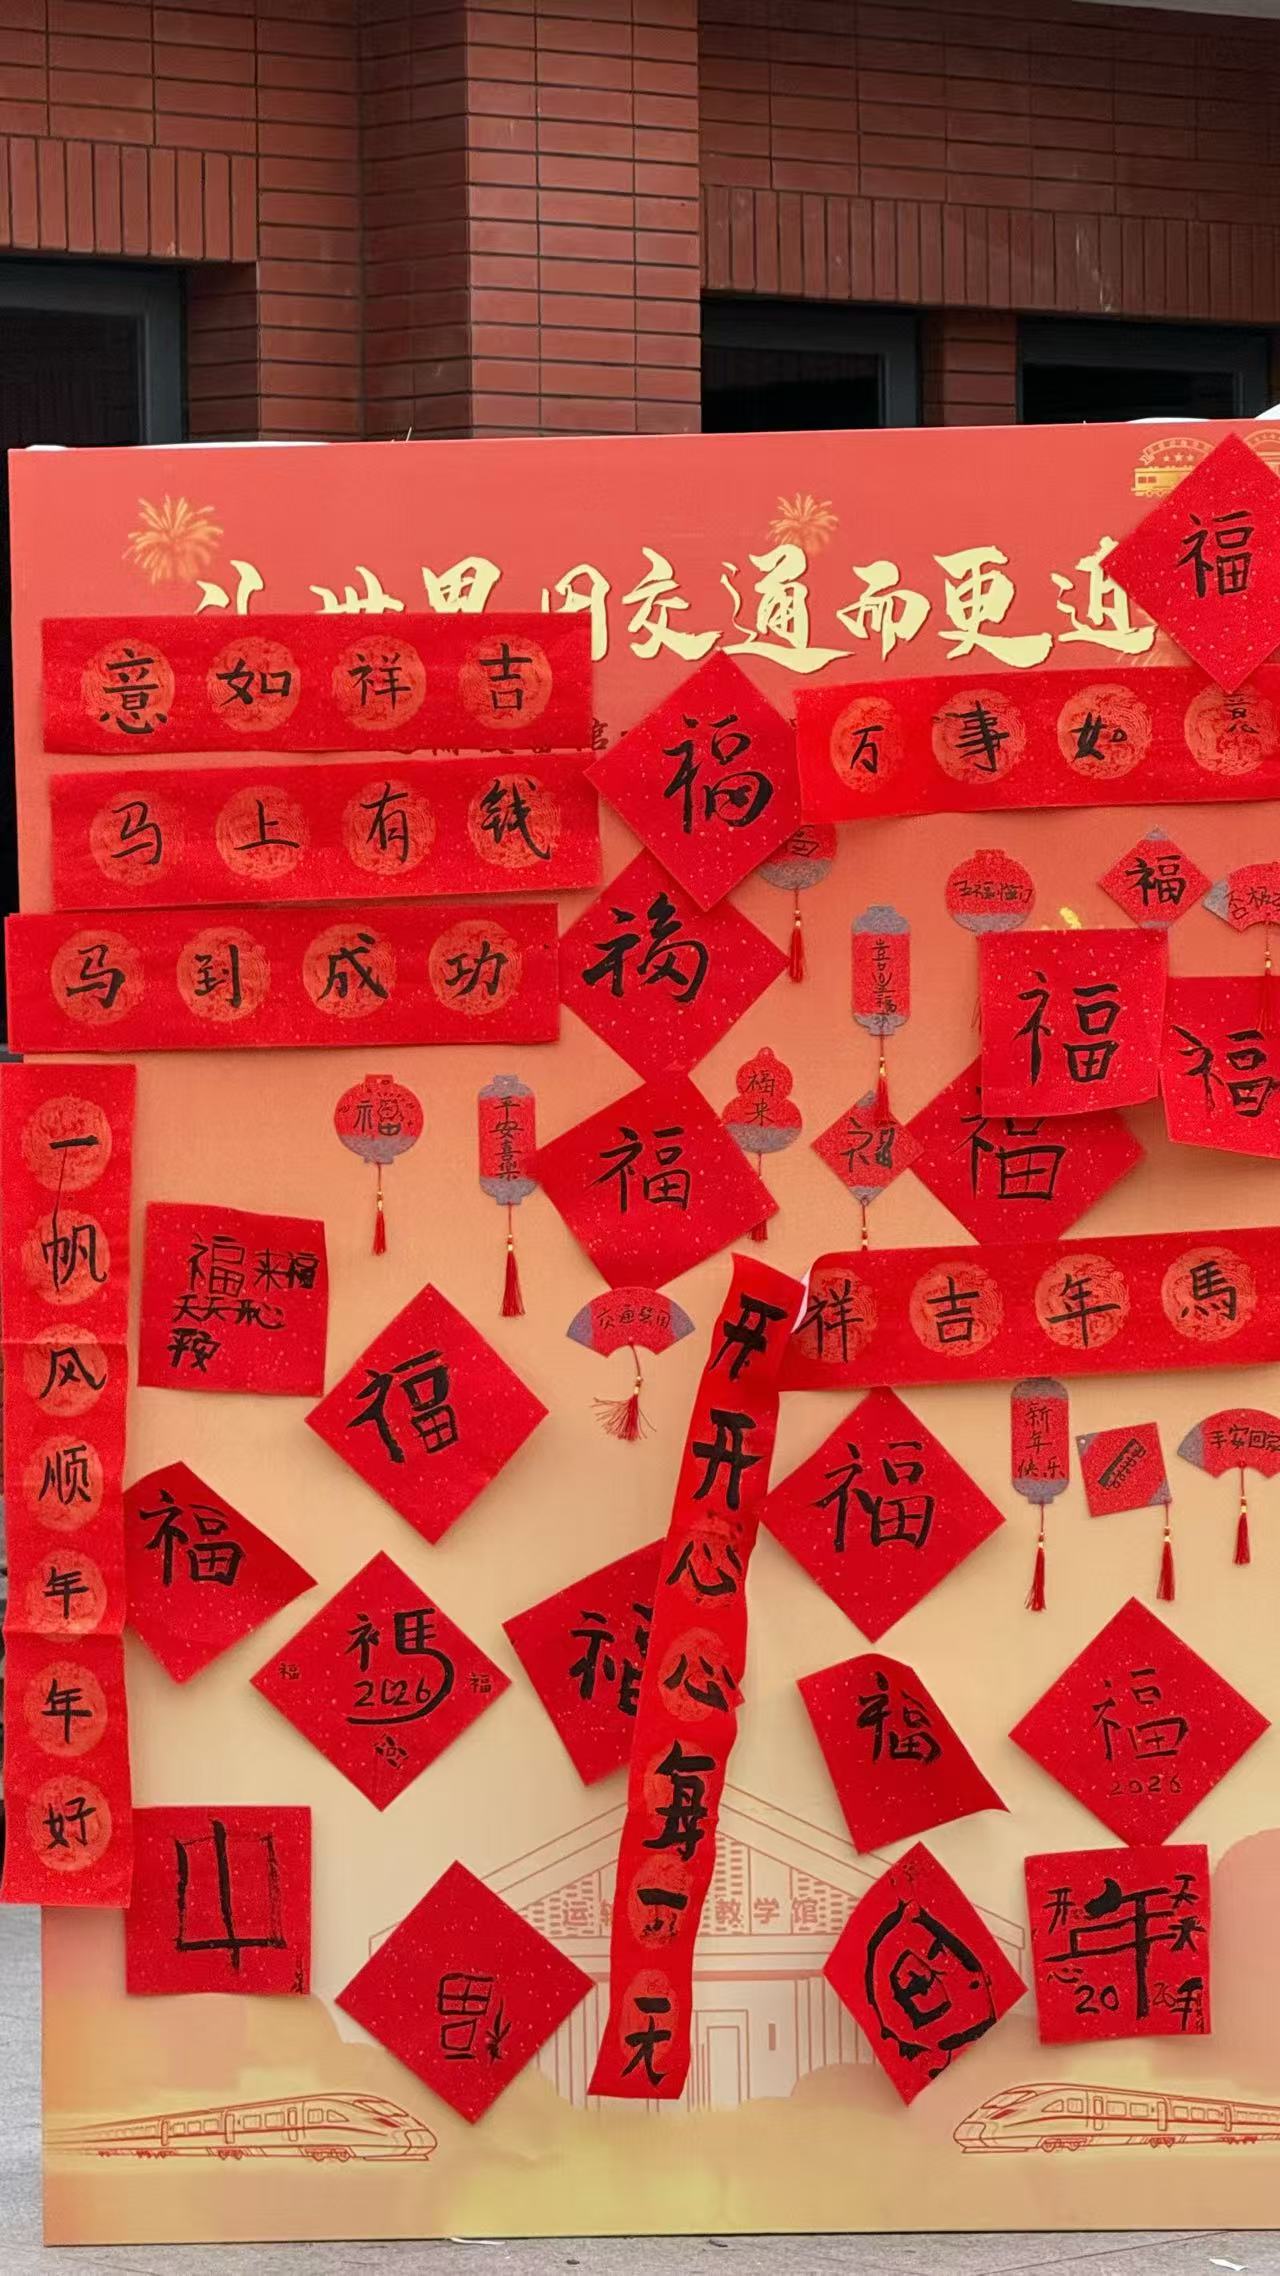 让世界因交通而更近
福
意如祥吉
福
万事如意
马上有钱
马到成功
福
五福临门
福
喜迎福
福
福
福
平安喜樂
福来
福
福
福
一帆风顺年年好
福来福
天天开心
平安
交通强国
开开心心每一天
祥吉年馬
福
福
新年快乐
平安回家
福
福
2026
福
福
福
福
福
2026
教学馆
福
开心
年
天天
2026